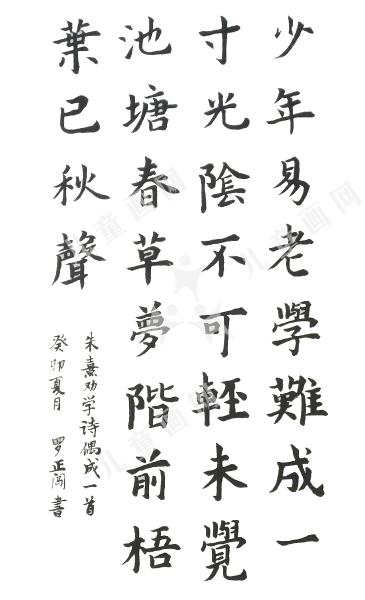 少年易老學難成一
寸光陰不可輕未覺
池塘春草夢階前梧
葉已秋聲
朱熹劝学诗偶成一首
癸卯夏月 罗正書
儿童画网